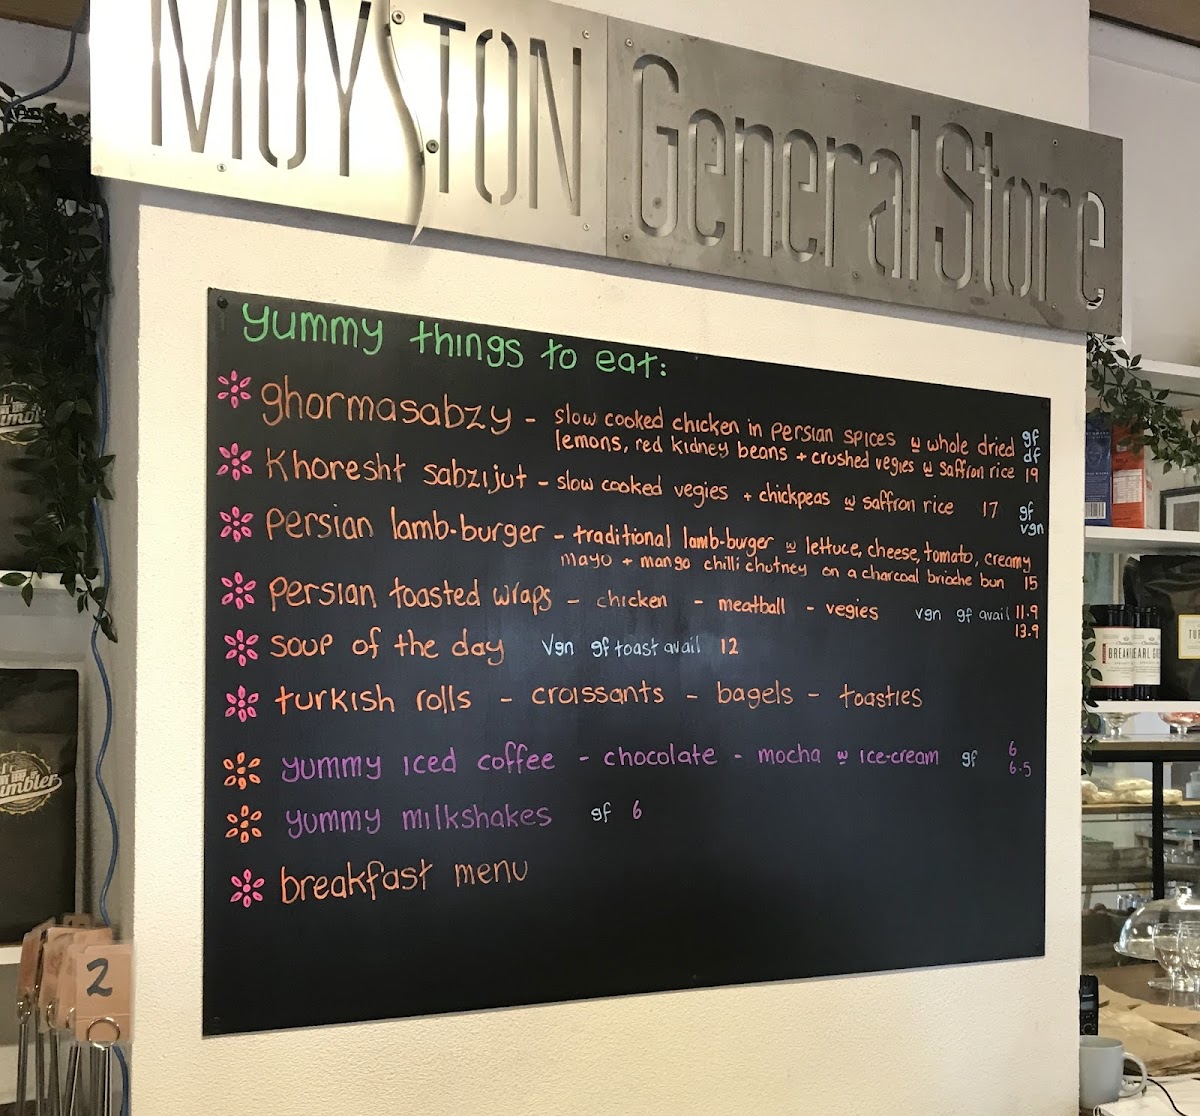 MOYSTON General Store
yummy things to eat:
ghormasabzy - slow cooked chicken in persian spices w whole dried gf
lemons, red kidney beans + crushed vegies w saffron rice 19 df
Khoresht sabzijut - slow cooked vegies + chickpeas w saffron rice 17 gf
vgn
persian lamb-burger - traditional lamb-burger w lettuce, cheese, tomato, creamy
mayo + mango chilli chutney on a charcoal brioche bun 15
persian toasted wraps - chicken - meatball - vegies vgn gf avail 11.9
13.9
soup of the day vgn gf toast avail 12
turkish rolls - croissants - bagels - toasties
yummy iced coffee - chocolate - mocha w ice-cream gf 6
6.5
yummy milkshakes gf 6
breakfast menu
2